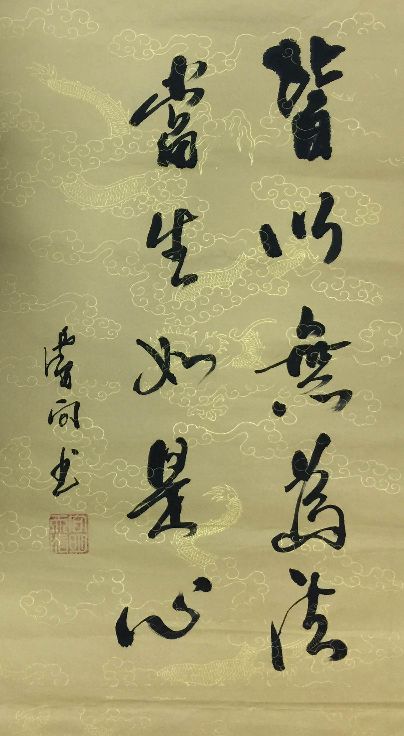 皆以無為法
當生如是心
書